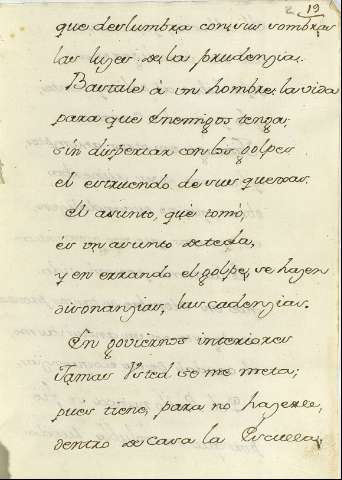 19
que deslumbra con sus sombras
las luzes de la prudenzia.
Bastale à un hombre la vida
para que Enemigos tenga;
sin dispertar con los golpes
el estruendo de sus quexas.
el asunto, que tomó,
es un asunto de tecla,
y en errando el golpe, se hazen
disonanzias, sus cadenzias.
En goviernos interiores
Jamas Usted se me meta;
pues tiene, para no hazerle,
dentro de casa la Escuela,